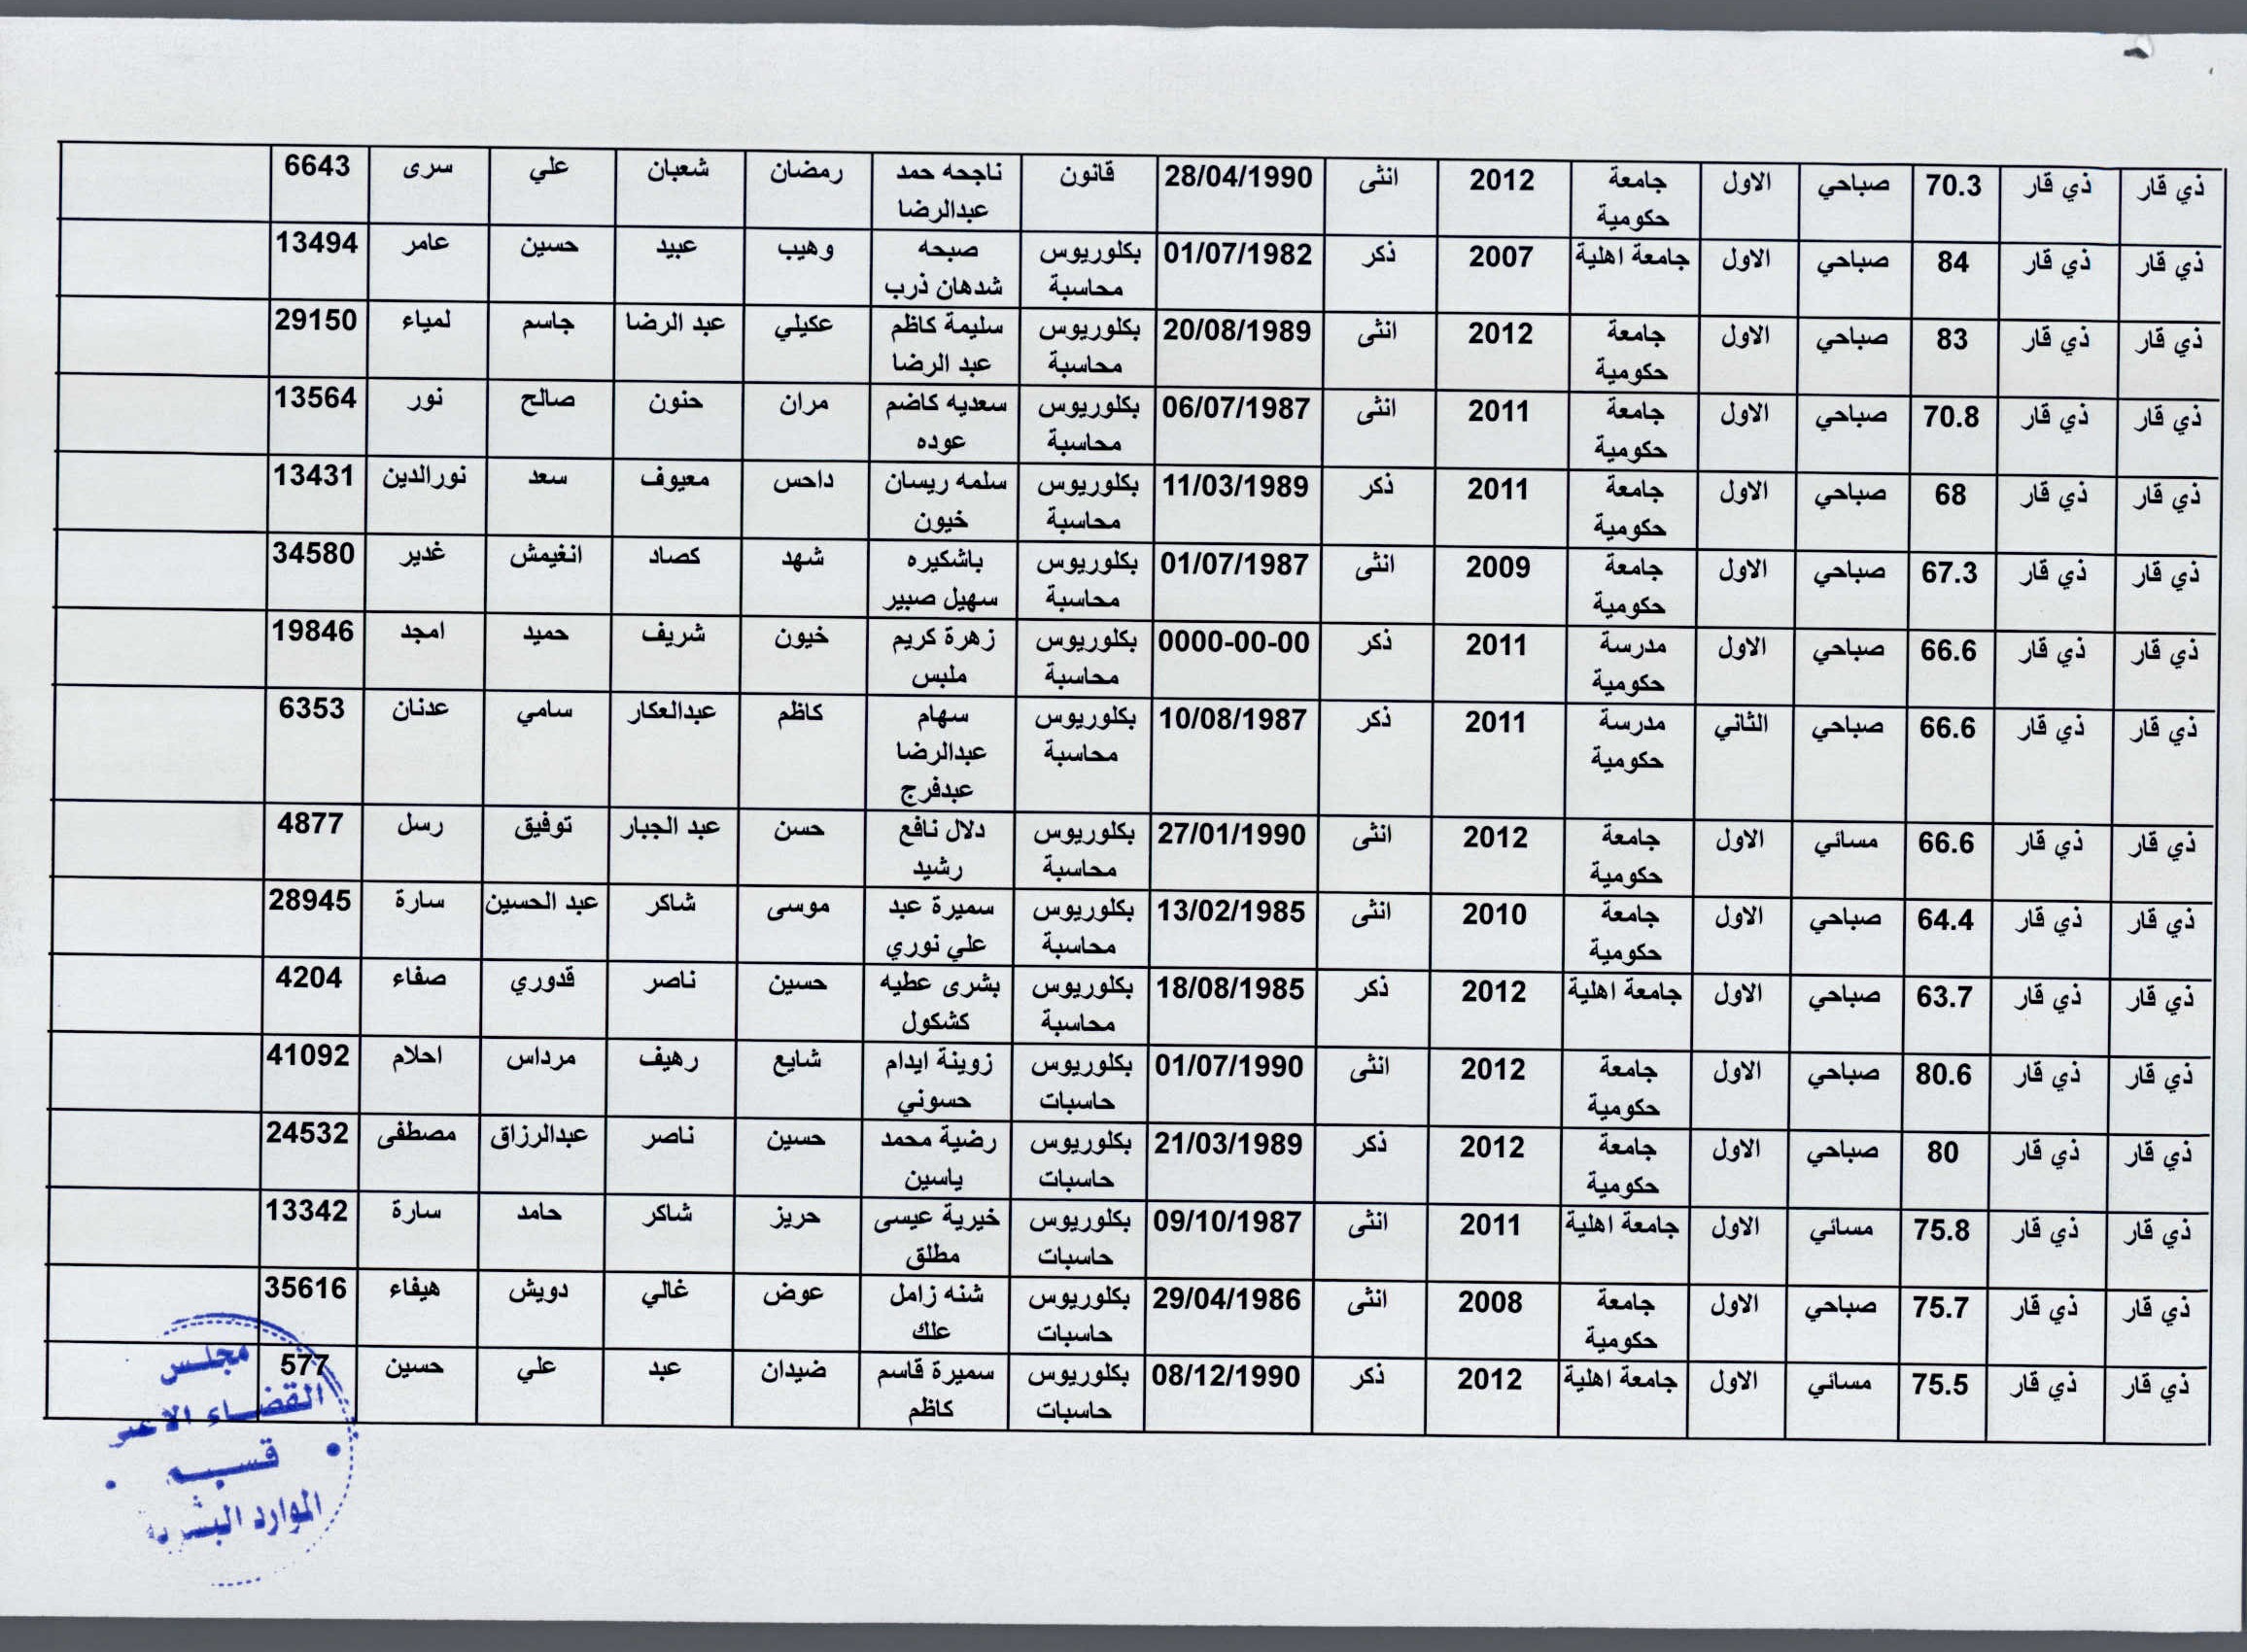 6643 سرى علي شعبان رمضان ناجحه حمد قانون 28/04/1990 انثى 2012 جامعة الاول صباحي 70.3 ذي قار ذي قار
عبدالرضا حكومية
13494 عامر حسين عبيد وهيب صبحه بكلوريوس 01/07/1982 ذكر 2007 جامعة اهلية الاول صباحي 84 ذي قار ذي قار
شدهان ذرب محاسبة
29150 لمياء جاسم عبد الرضا عكيلي سليمة كاظم بكلوريوس 20/08/1989 انثى 2012 جامعة الاول صباحي 83 ذي قار ذي قار
عبد الرضا محاسبة حكومية
13564 نور صالح حنون مران سعديه كاضم بكلوريوس 06/07/1987 انثى 2011 جامعة الاول صباحي 70.8 ذي قار ذي قار
عوده محاسبة حكومية
13431 نورالدين سعد معيوف داحس سلمه ريسان بكلوريوس 11/03/1989 ذكر 2011 جامعة الاول صباحي 68 ذي قار ذي قار
خيون محاسبة حكومية
34580 غدير انغيمش كصاد شهد باشكيره بكلوريوس 01/07/1987 انثى 2009 جامعة الاول صباحي 67.3 ذي قار ذي قار
سهيل صبير محاسبة حكومية
19846 امجد حميد شريف خيون زهرة كريم بكلوريوس 0000-00-00 ذكر 2011 مدرسة الاول صباحي 66.6 ذي قار ذي قار
ملبس محاسبة حكومية
6353 عدنان سامي عبدالعكار كاظم سهام بكلوريوس 10/08/1987 ذكر 2011 مدرسة الثاني صباحي 66.6 ذي قار ذي قار
عبدالرضا محاسبة حكومية
عبدفرج
4877 رسل توفيق عبد الجبار حسن دلال نافع بكلوريوس 27/01/1990 انثى 2012 جامعة الاول مسائي 66.6 ذي قار ذي قار
رشيد محاسبة حكومية
28945 سارة عبد الحسين شاكر موسى سميرة عبد بكلوريوس 13/02/1985 انثى 2010 جامعة الاول صباحي 64.4 ذي قار ذي قار
علي نوري محاسبة حكومية
4204 صفاء قدوري ناصر حسين بشرى عطيه بكلوريوس 18/08/1985 ذكر 2012 جامعة اهلية الاول صباحي 63.7 ذي قار ذي قار
كشكول محاسبة
41092 احلام مرداس رهيف شايع زوينة ايدام بكلوريوس 01/07/1990 انثى 2012 جامعة الاول صباحي 80.6 ذي قار ذي قار
حسوني حاسبات حكومية
24532 مصطفى عبدالرزاق ناصر حسين رضية محمد بكلوريوس 21/03/1989 ذكر 2012 جامعة الاول صباحي 80 ذي قار ذي قار
ياسين حاسبات حكومية
13342 سارة حامد شاكر حريز خيرية عيسى بكلوريوس 09/10/1987 انثى 2011 جامعة اهلية الاول مسائي 75.8 ذي قار ذي قار
مطلق حاسبات
35616 هيفاء دويش غالي عوض شنه زامل بكلوريوس 29/04/1986 انثى 2008 جامعة الاول صباحي 75.7 ذي قار ذي قار
علك حاسبات حكومية
577 حسين علي عبد ضيدان سميرة قاسم بكلوريوس 08/12/1990 ذكر 2012 جامعة اهلية الاول مسائي 75.5 ذي قار ذي قار
كاظم حاسبات
مجلس
القضاء
قسم
الموارد البشرية